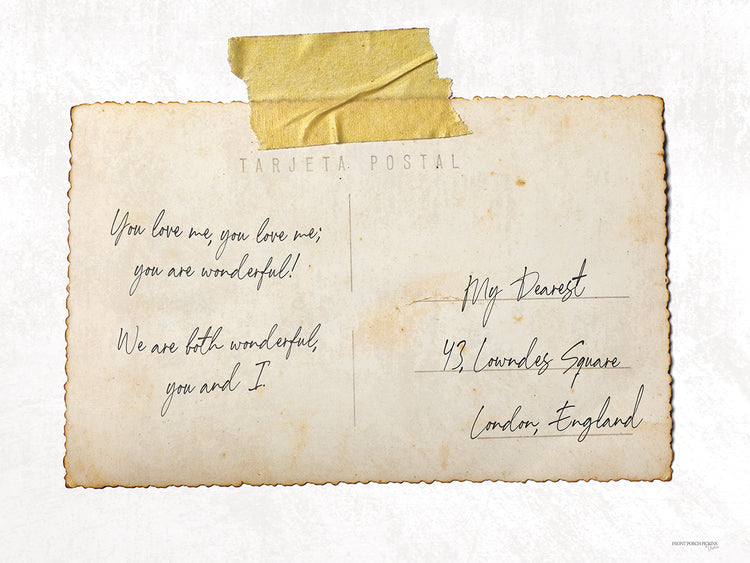 TARJETA POSTAL
You love me, you love me;
you are wonderful!
We are both wonderful,
you and I.
My Dearest
43, Lowndes Square
London, England
FRONT PORCH PICKINS